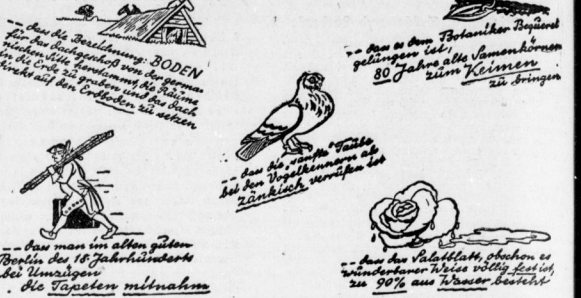 -- dass die Bezeichnung: BODEN
für das Dachgeschoß von der germa-
nischen Sitte herstammt, die Räume
in die Erde zu graben und das Dach
direkt auf den Erdboden zu setzen
-- dass es dem Botaniker Bequerel
gelungen ist,
80 Jahre alte Samenkörner
zum Keimen
zu bringen
-- dass die „sanfte" Taube
bei den Vogelkennern als
zänkisch verrufen ist
-- dass man im alten guten
Berlin des 18. Jahrhunderts
bei Umzügen
die Tapeten mitnahm
-- dass das Salatblatt, obschon es
wunderbarer Weise völlig fest ist,
zu 90% aus Wasser besteht